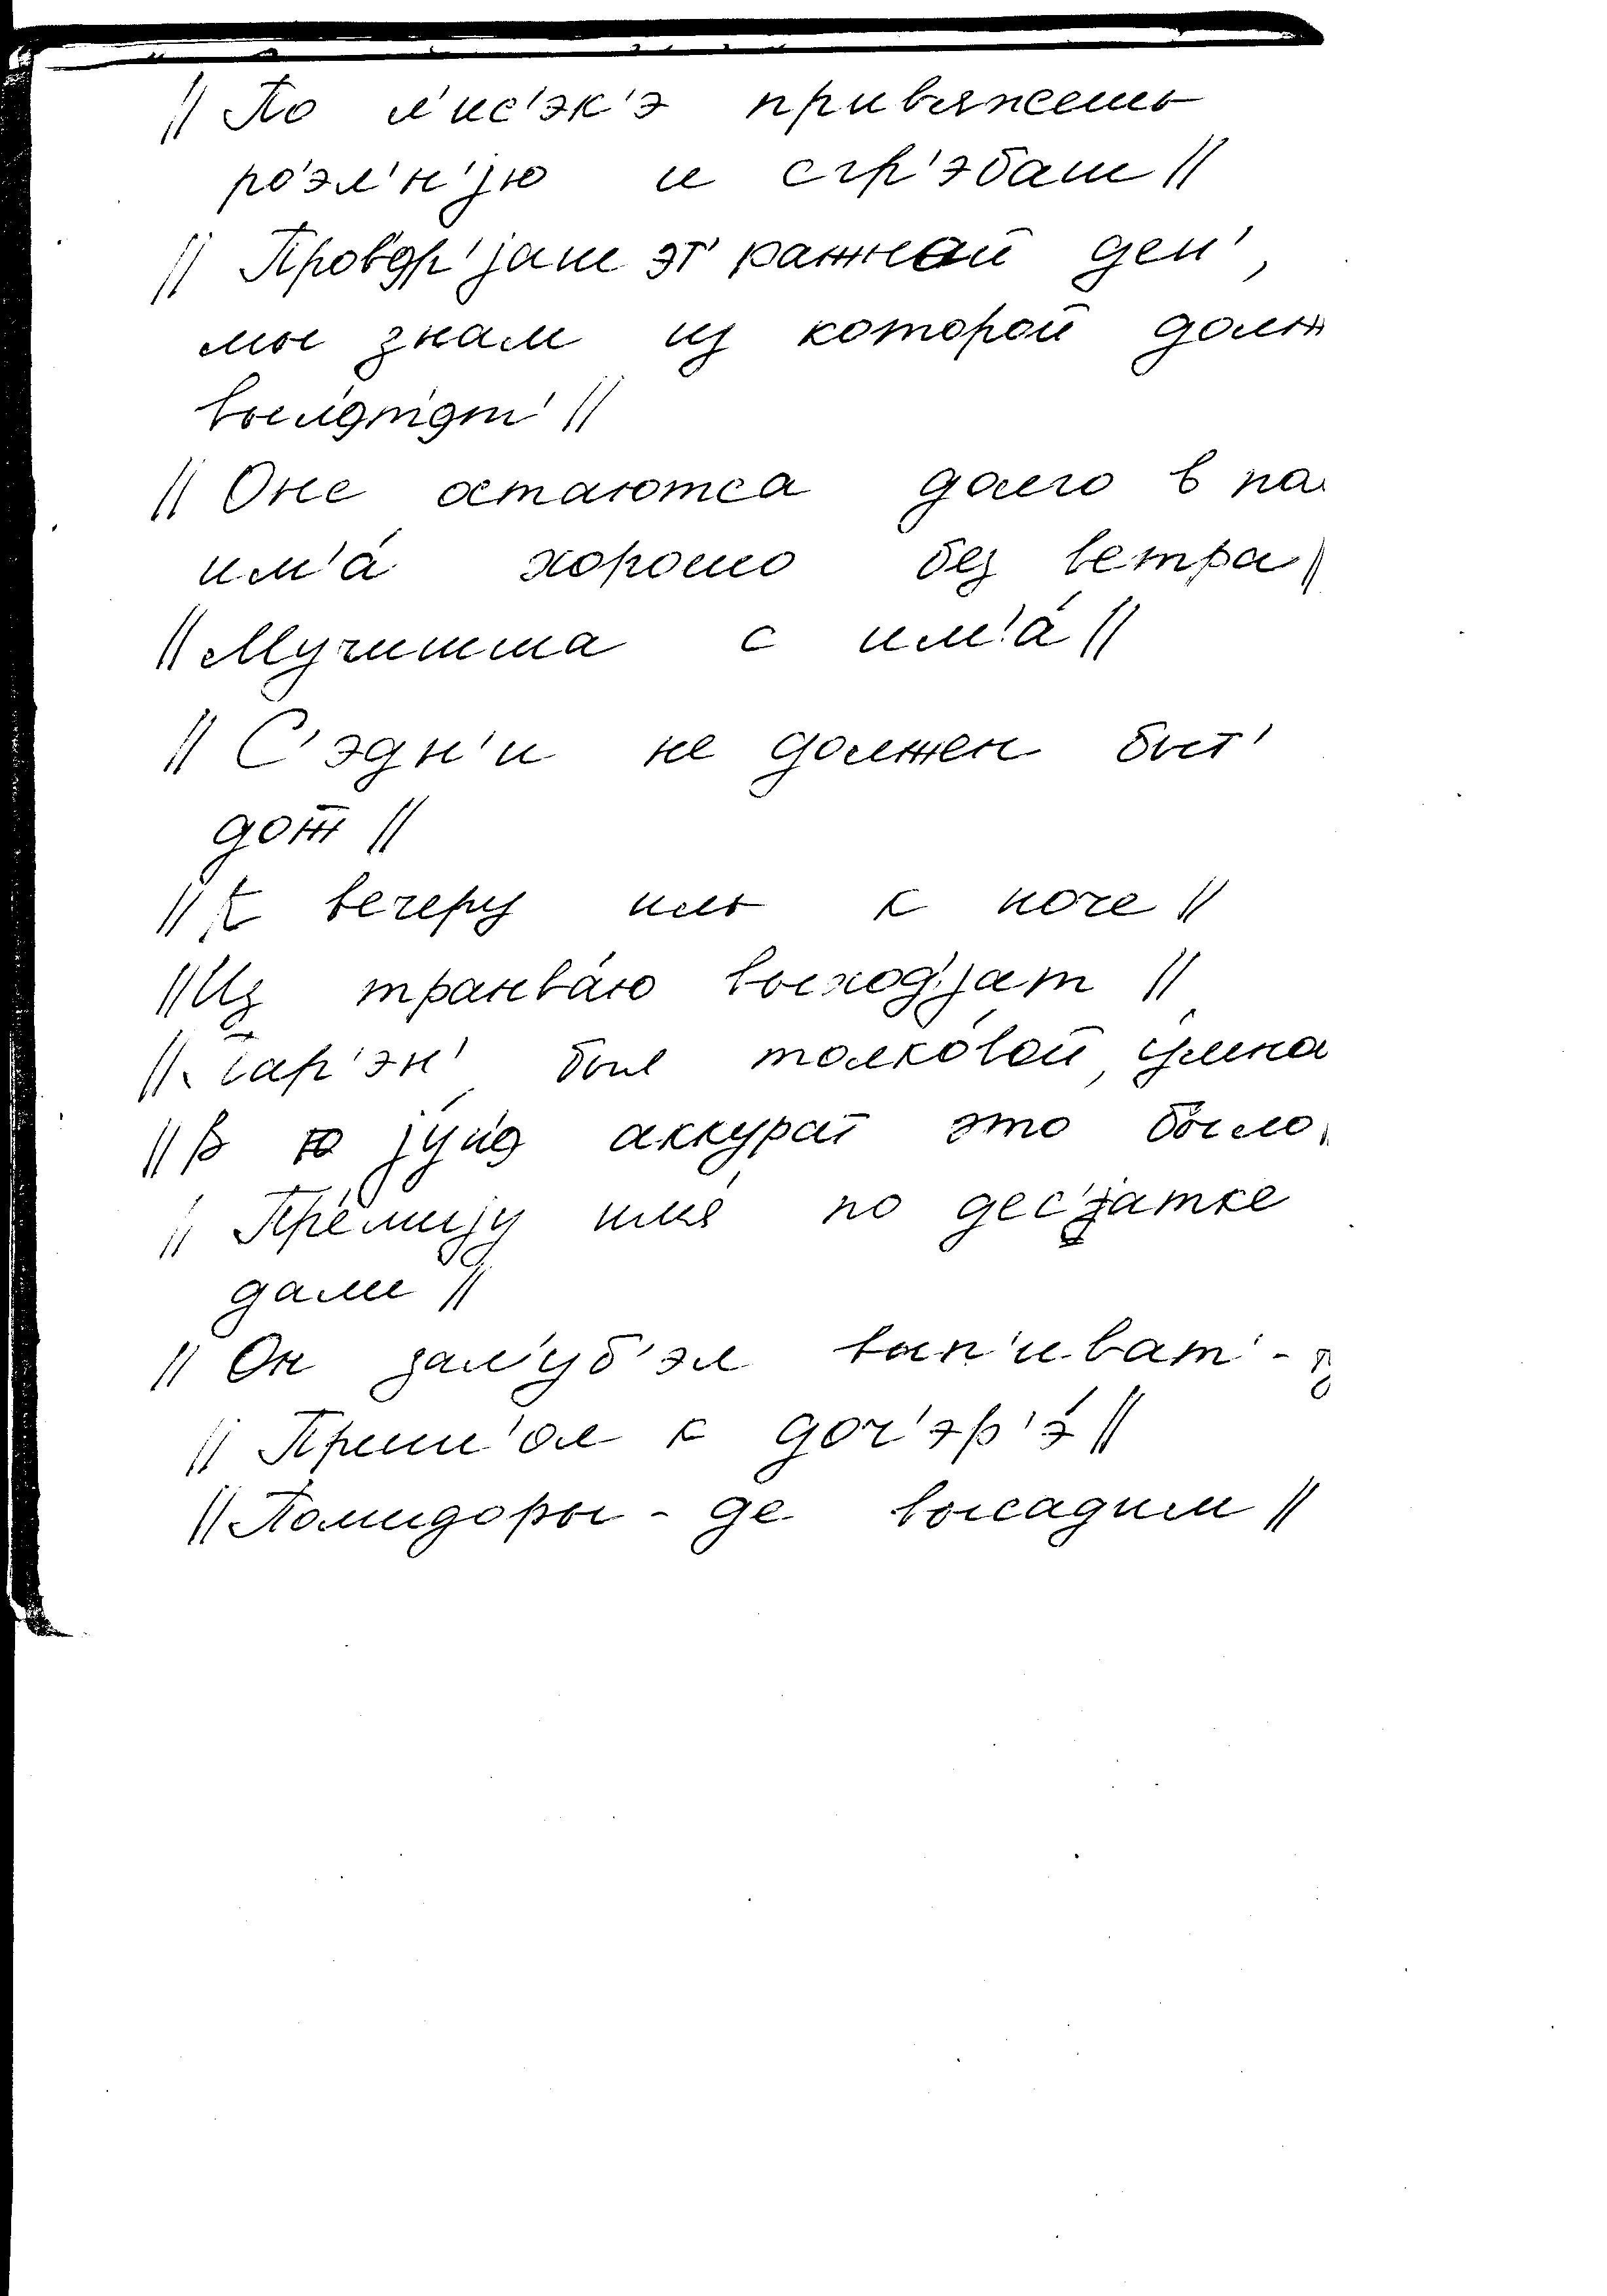 || По л'ис'эк'э привяжешь
ро́эл'н'jю и сгр'эбаш ||
|| Пров'эр'jаш эт' ражной ден',
мы знам из которой долж
выл'эт'эт' ||
|| Оне остаются долго в па
им'а́ хорошо без ветра ||
|| Мучишша с им'а́ ||
|| С'эдн'и не должен быт'
дош ||
|| К вечеру иль к ноче ||
|| Из транва́ю выход'jат ||
|| Пар'эн' был толко́вой, у́мна
|| В jу́н'э аккурат это было
|| Пре́мијy имя́ по дес'jатке
дали ||
|| Он зал'уб'эл вып'иват' -
|| Приш'ол к доч'эр'э́ ||
|| Помидоры - де высадим ||